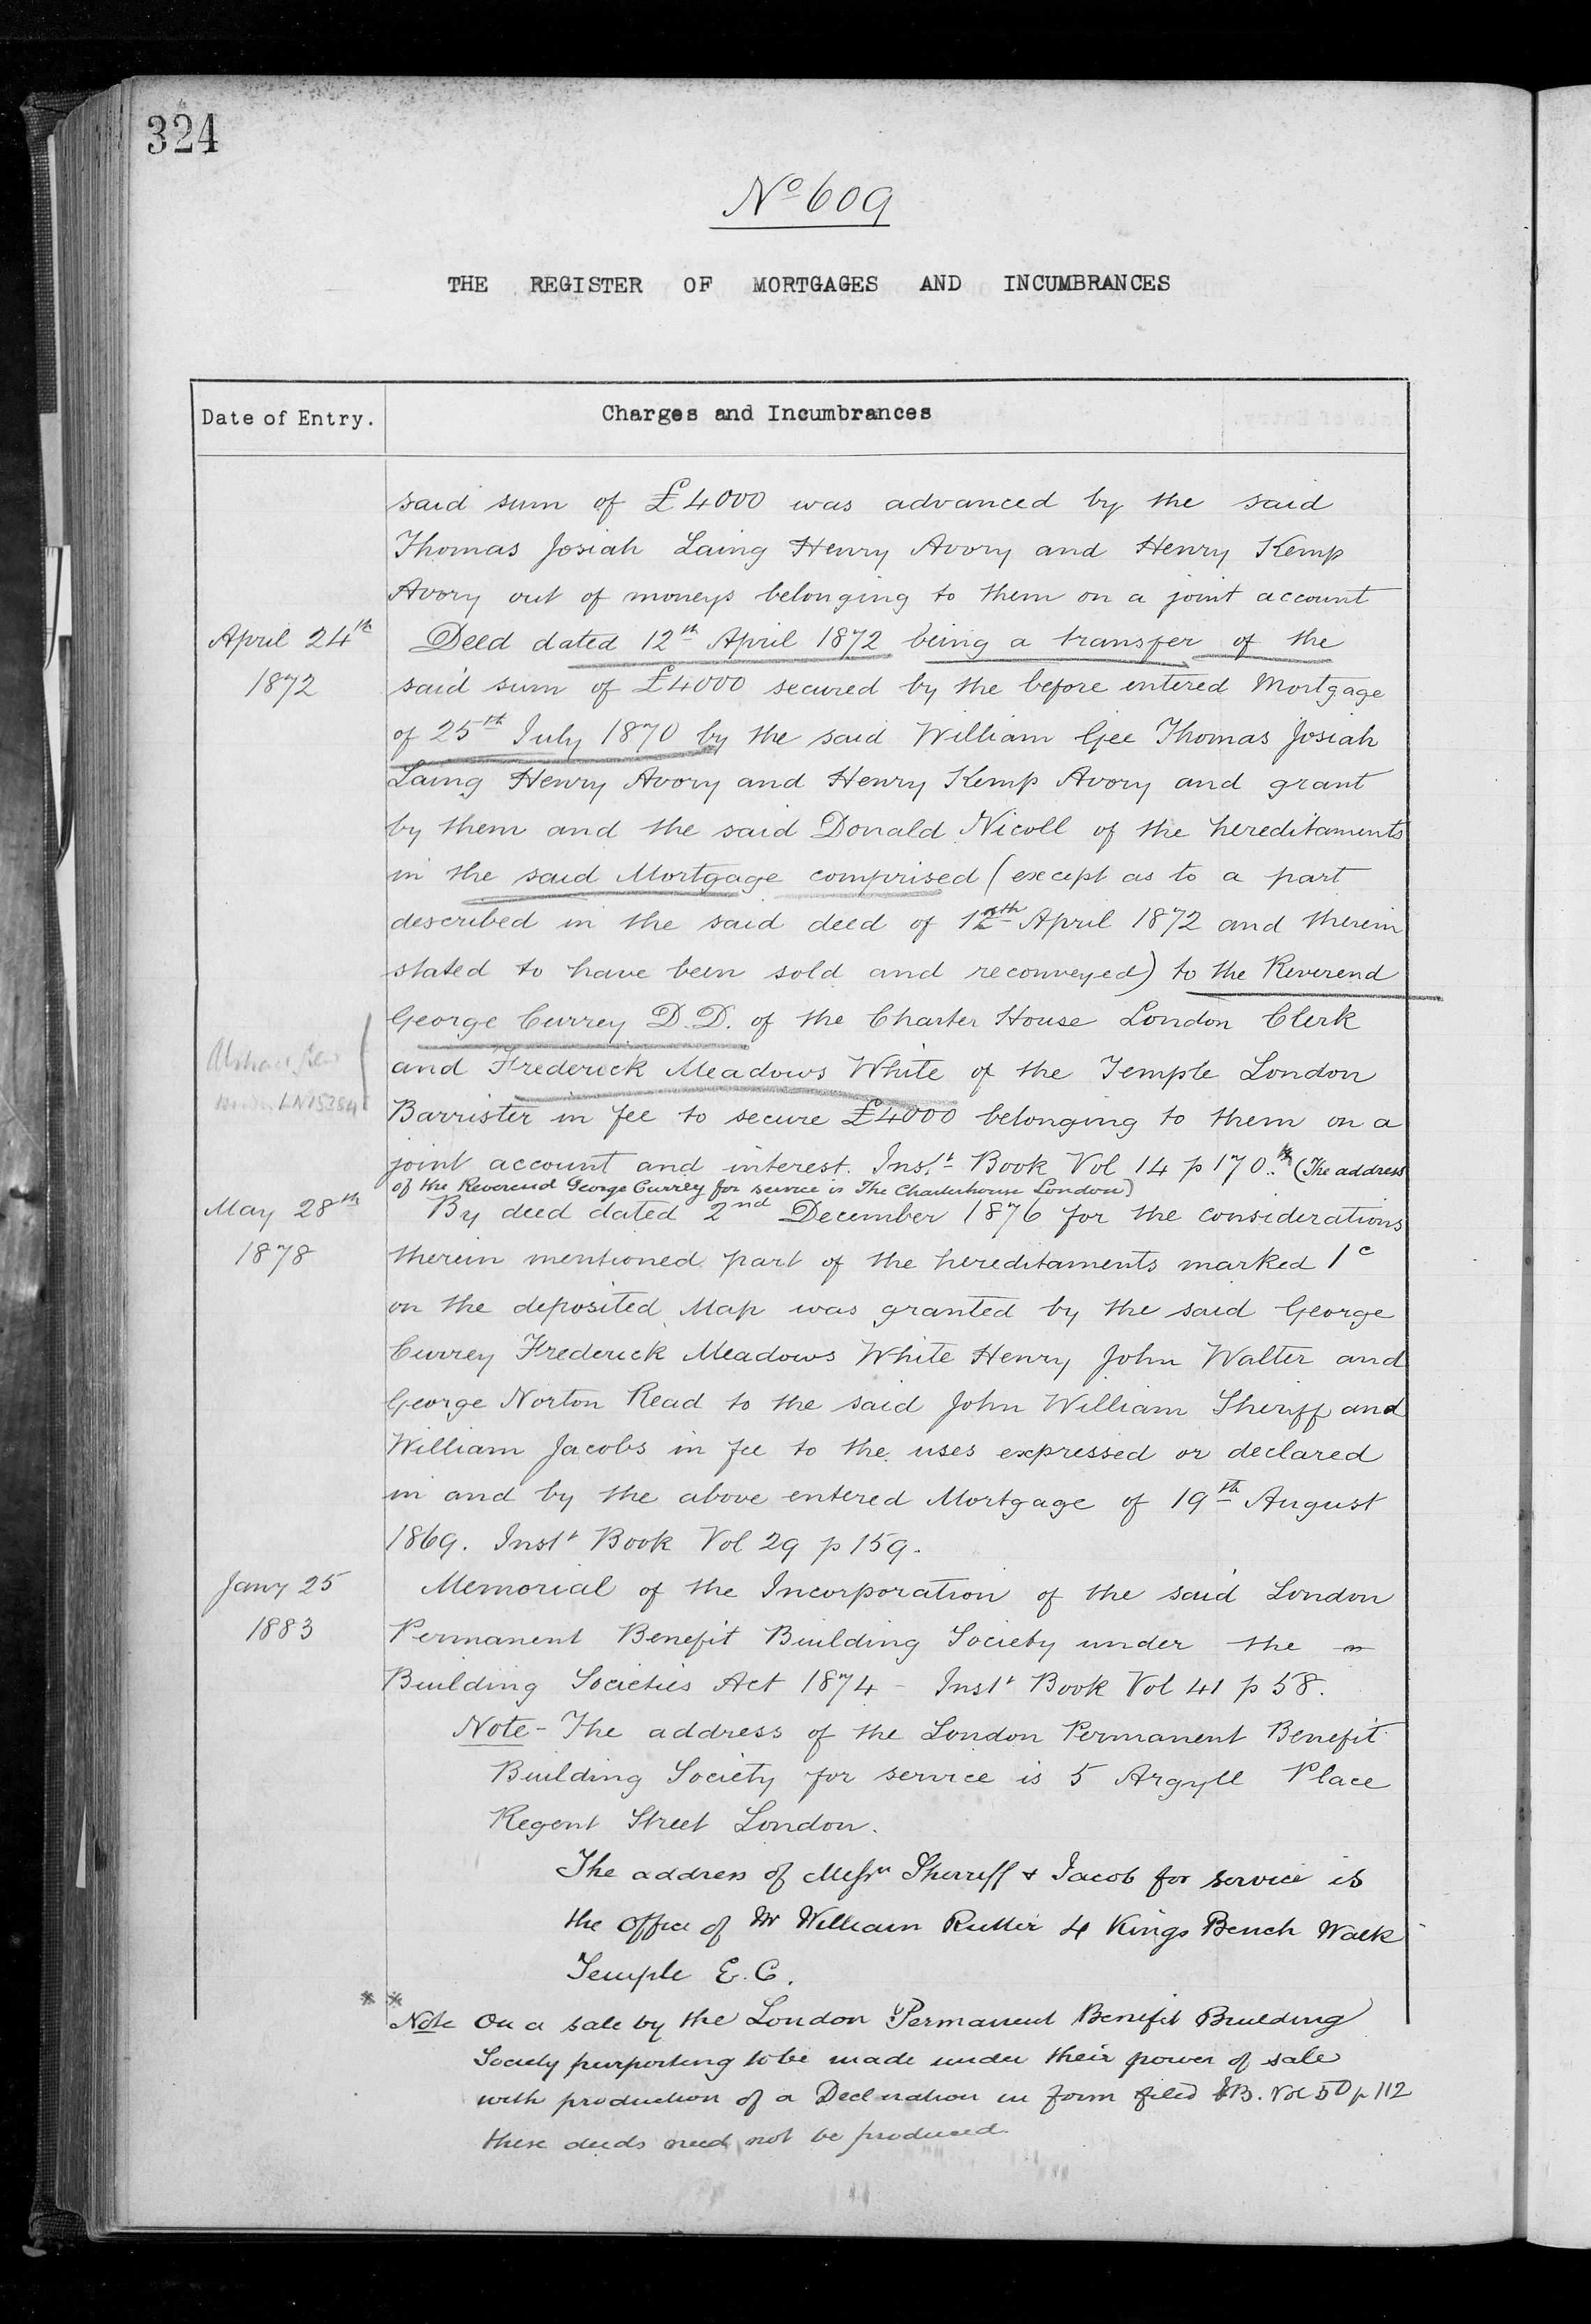 324
No 609
THE REGISTER OF MORTGAGES AND INCUMBRANCES
Date of Entry.
Charges and Incumbrances
said sum of £4000 was advanced by the said
Thomas Josiah Laing Henry Avory and Henry Kemp
Avory out of moneys belonging to them on a joint account
April 24th
1872
Deed dated 12th April 1872 being a transfer of the
said sum of £4000 secured by the before entered Mortgage
of 25th July 1870 by the said William Gee Thomas Josiah
Laing Henry Avory and Henry Kemp Avory and grant
by them and the said Donald Nicoll of the hereditaments
in the said Mortgage comprised (except as to a part
described in the said deed of 12th April 1872 and therein
stated to have been sold and reconveyed) to the Reverend
George Currey D.D. of the Charter House London Clerk
and Frederick Meadows White of the Temple London
LN15384
Barrister in fee to secure £4000 belonging to them on a
joint account and interest. Inst. Book Vol 14 p 170. (The address
of the Reverend George Currey for service is The Charterhouse London)
May 28th
1878
By deed dated 2nd December 1876 for the considerations
therein mentioned part of the hereditaments marked 1c
on the deposited Map was granted by the said George
Currey Frederick Meadows White Henry John Walter and
George Norton Read to the said John William Sheriff and
William Jacobs in fee to the uses expressed or declared
in and by the above entered Mortgage of 19th August
1869. Inst Book Vol 29 p 159.
Jany 25
1883
Memorial of the Incorporation of the said London
Permanent Benefit Building Society under the
Building Societies Act 1874 - Inst Book Vol 41 p 58.
Note - The address of the London Permanent Benefit
Building Society for service is 5 Argyll Place
Regent Street London.
The address of Messrs Sherriff & Jacob for service is
the office of Mr William Rutter 4 Kings Bench Walk
Temple E.C.
* *
Note On a sale by the London Permanent Benefit Building
Society purporting to be made under their power of sale
with production of a Declaration in form filed I.B. Vol 50 p 112
these deeds need not be produced